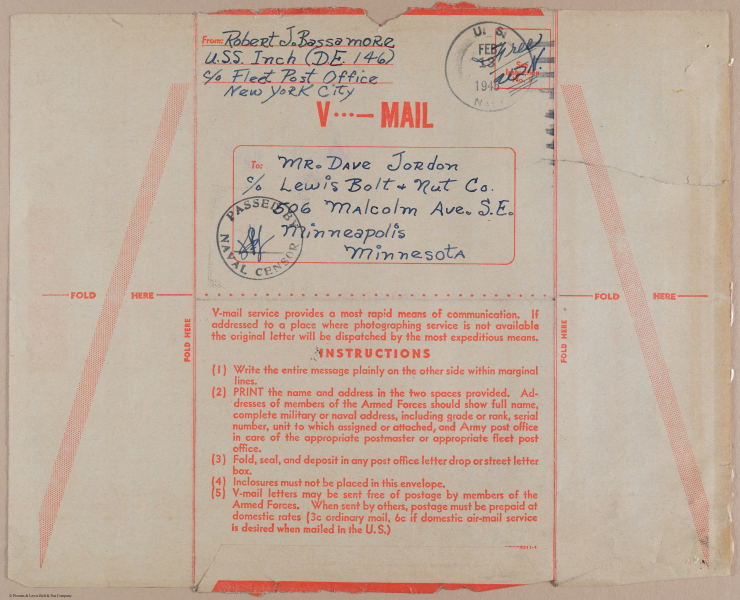 From: Robert J. Bassamore
U.S.S. Inch (D.E. 146)
c/o Fleet Post Office
New York City
U. S.
FEB
13
1945
NA
Free
U.S.N.
V ···— MAIL
To: Mr. Dave Jordon
c/o Lewis Bolt + Nut Co.
506 Malcolm Ave. S.E.
Minneapolis
Minnesota
PASSED BY
NAVAL CENSOR
FOLD HERE
FOLD HERE
FOLD HERE
FOLD HERE
V-mail service provides a most rapid means of communication. If
addressed to a place where photographing service is not available
the original letter will be dispatched by the most expeditious means.
INSTRUCTIONS
(1) Write the entire message plainly on the other side within marginal
lines.
(2) PRINT the name and address in the two spaces provided. Ad-
dresses of members of the Armed Forces should show full name,
complete military or naval address, including grade or rank, serial
number, unit to which assigned or attached, and Army post office
in care of the appropriate postmaster or appropriate fleet post
office.
(3) Fold, seal, and deposit in any post office letter drop or street letter
box.
(4) Inclosures must not be placed in this envelope.
(5) V-mail letters may be sent free of postage by members of the
Armed Forces. When sent by others, postage must be prepaid at
domestic rates (3c ordinary mail, 6c if domestic air-mail service
is desired when mailed in the U.S.)